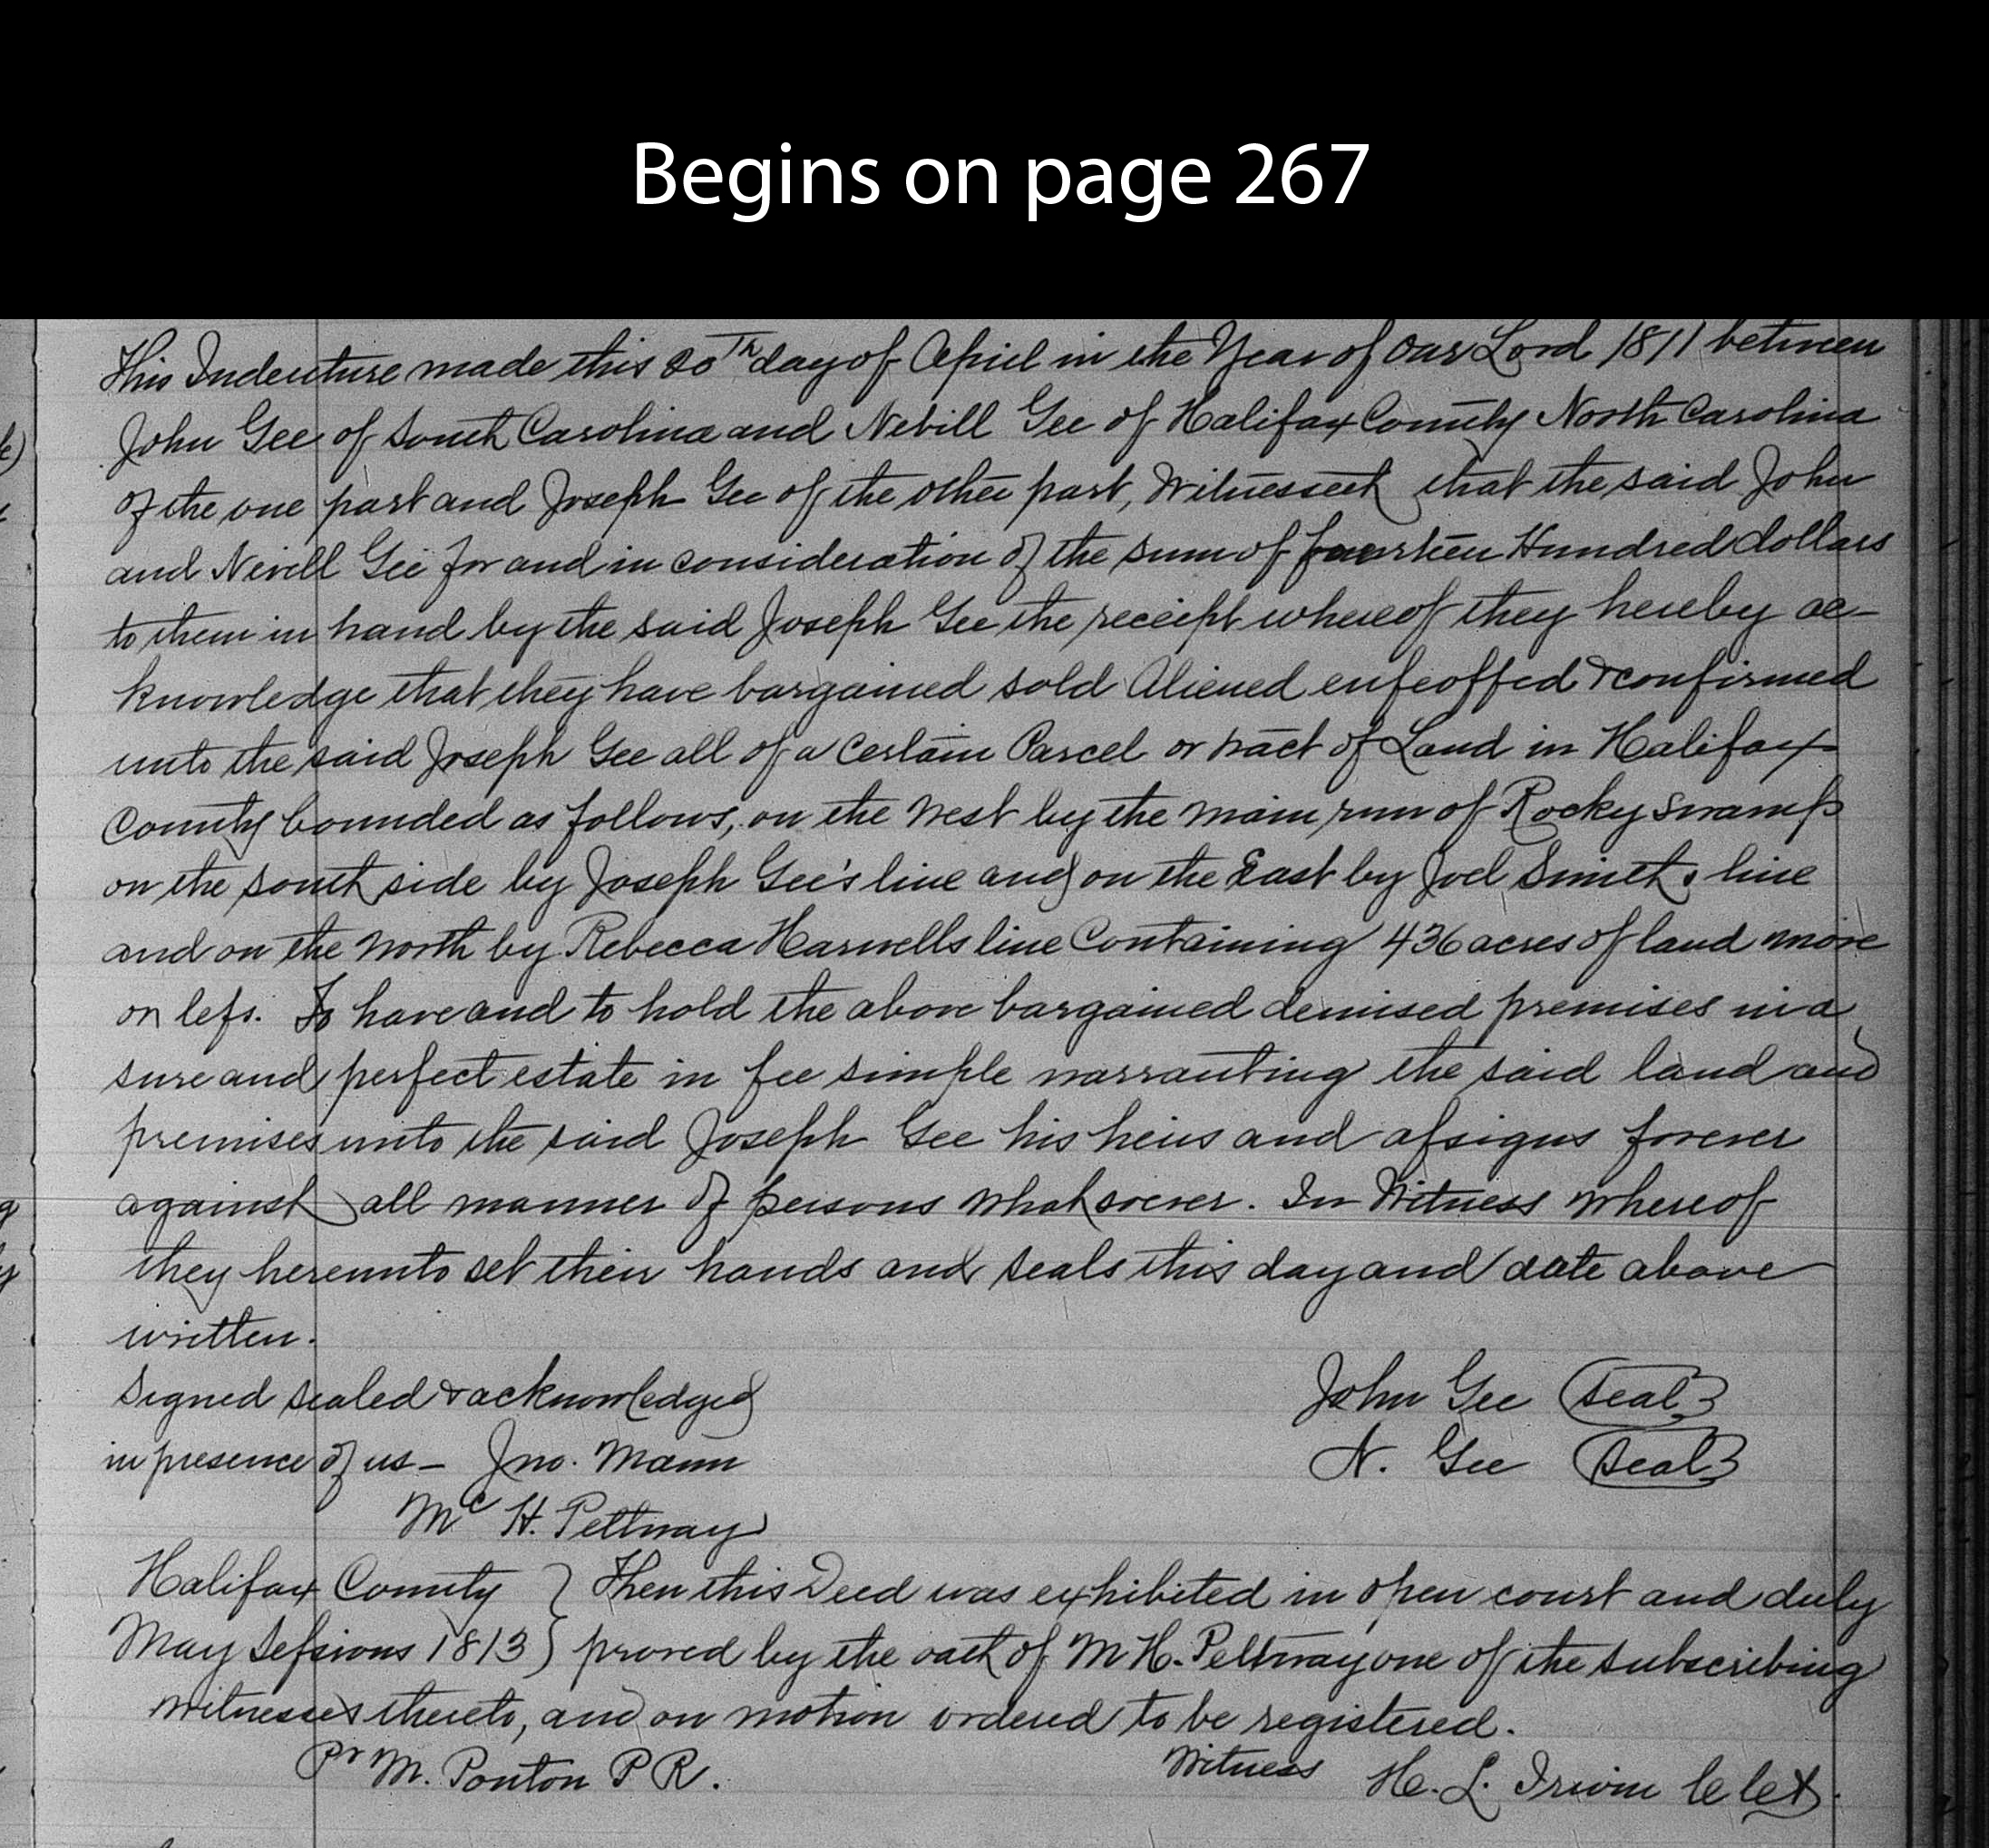 Begins on page 267
This Indenture made this 20th day of April in the Year of our Lord 1811 between
John Gee of South Carolina and Nevill Gee of Halifax County North Carolina
of the one part and Joseph Gee of the other part, Witnesseth that the said John
and Nevill Gee for and in consideration of the sum of fourteen Hundred dollars
to them in hand by the said Joseph Gee the receipt whereof they hereby ac-
knowledge that they have bargained sold Aliened enfeoffed & confirmed
unto the said Joseph Gee all of a certain Parcel or tract of Land in Halifax
County bounded as follows, on the West by the main run of Rocky Swamp
on the south side by Joseph Gee's line and on the East by Joel Smiths line
and on the North by Rebecca Harwells line Containing 436 acres of land more
or less. To have and to hold the above bargained demised premises in a
sure and perfect estate in fee simple warranting the said land and
premises unto the said Joseph Gee his heirs and assigns forever
against all manner of persons whatsoever. In Witness whereof
they hereunto set their hands and seals this day and date above
written.
Signed sealed & acknowledged John Gee (Seal)
in presence of us - Jno. Mann N. Gee (Seal)
Mc H. Pettway
Halifax County } Then this Deed was exhibited in open court and duly
May Sessions 1813 } proved by the oath of M H. Pettway one of the subscribing
witnesses thereto, and on motion ordered to be registered.
Pr M. Ponton P R. Witness H. L. Irwin